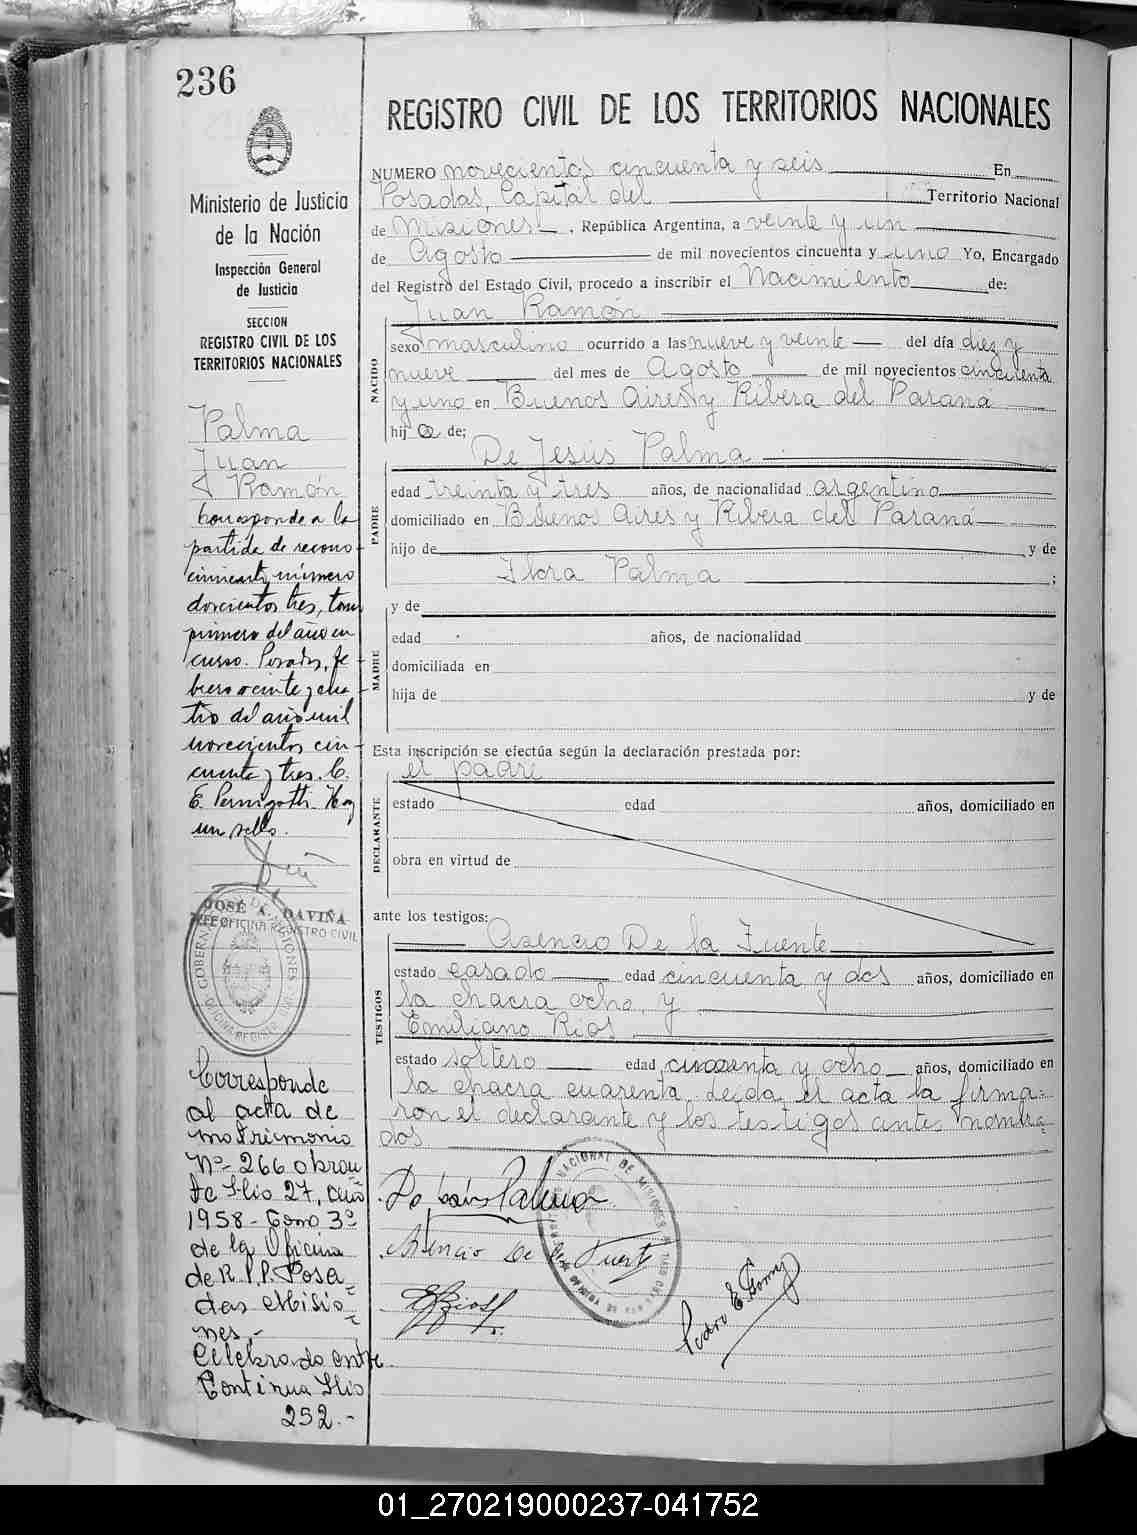 236
REGISTRO CIVIL DE LOS TERRITORIOS NACIONALES
Ministerio de Justicia
de la Nación
Inspección General
de Justicia
SECCION
REGISTRO CIVIL DE LOS
TERRITORIOS NACIONALES
Palma
Juan
Ramón
Corresponde a la
partida de recono-
cimiento número
doscientos tres, tomo
primero del año en
curso. Posadas, fe-
brero veinte y cua-
tro del año mil
novecientos cin-
cuenta y tres. C.
E. Pernigotti. Hay
un sello.
JOSÉ A. DAVIÑA
JEFE OFICINA REGISTRO CIVIL
Corresponde
al acta de
matrimonio
Nº 266 obran
te flio 27, año
1958 - Tomo 3º
de la Oficina
de R.P.P. Posa=
das Misio=
nes.-
Celebrado entre
Continua flio
252.-
NUMERO novecientos cincuenta y seis En
Posadas, Capital del Territorio Nacional
de Misiones, República Argentina, a veinte y un
de Agosto de mil novecientos cincuenta y uno Yo, Encargado
del Registro del Estado Civil, procedo a inscribir el Nacimiento de:
Juan Ramón
NACIDO
sexo masculino ocurrido a las nueve y veinte del día diez y
nueve del mes de Agosto de mil novecientos cincuenta
y uno en Buenos Aires y Ribera del Paraná
hij o de;
De Jesús Palma
PADRE
edad treinta y tres años, de nacionalidad argentino
domiciliado en Buenos Aires y Ribera del Paraná
hijo de y de
Flora Palma ;
MADRE
y de
edad años, de nacionalidad
domiciliada en
hija de y de
Esta inscripción se efectúa según la declaración prestada por:
el padre
DECLARANTE
estado edad años, domiciliado en
obra en virtud de
ante los testigos:
Asencio De la Fuente
TESTIGOS
estado casado edad cincuenta y dos años, domiciliado en
la chacra ocho, y
Emiliano Rios
estado soltero edad cincuenta y ocho años, domiciliado en
la chacra cuarenta. Leida el acta la firma=
ron el declarante y los testigos antes nombra=
dos
De Jesús Palma
Asencio De la Fuente
E Rios
Pedro E. Gomez
01_270219000237-041752